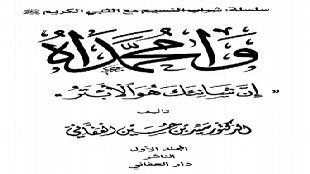 سلسلة: شراب التسنيم مع النبي الكريم ﷺ
وا محمداه
« إن شانئك هو الأبتر »
تأليف
الدكتور سيد بن حسين العفاني
المجلد الأول
الناشر
دار العفاني